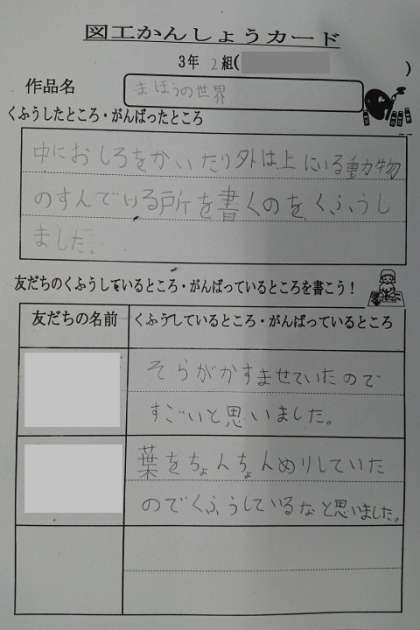 図工かんしょうカード
3年 2組( )
作品名 まほうの世界
くふうしたところ・がんばったところ
中におしろをかいたり外は上にいる動物
のすんでいる所を書くのをくふうし
ました。
友だちのくふうしているところ・がんばっているところを書こう！
友だちの名前 くふうしているところ・がんばっているところ
そらがかすませていたので
すごいと思いました。
葉をちょんちょんぬりしていた
のでくふうしているなと思いました。